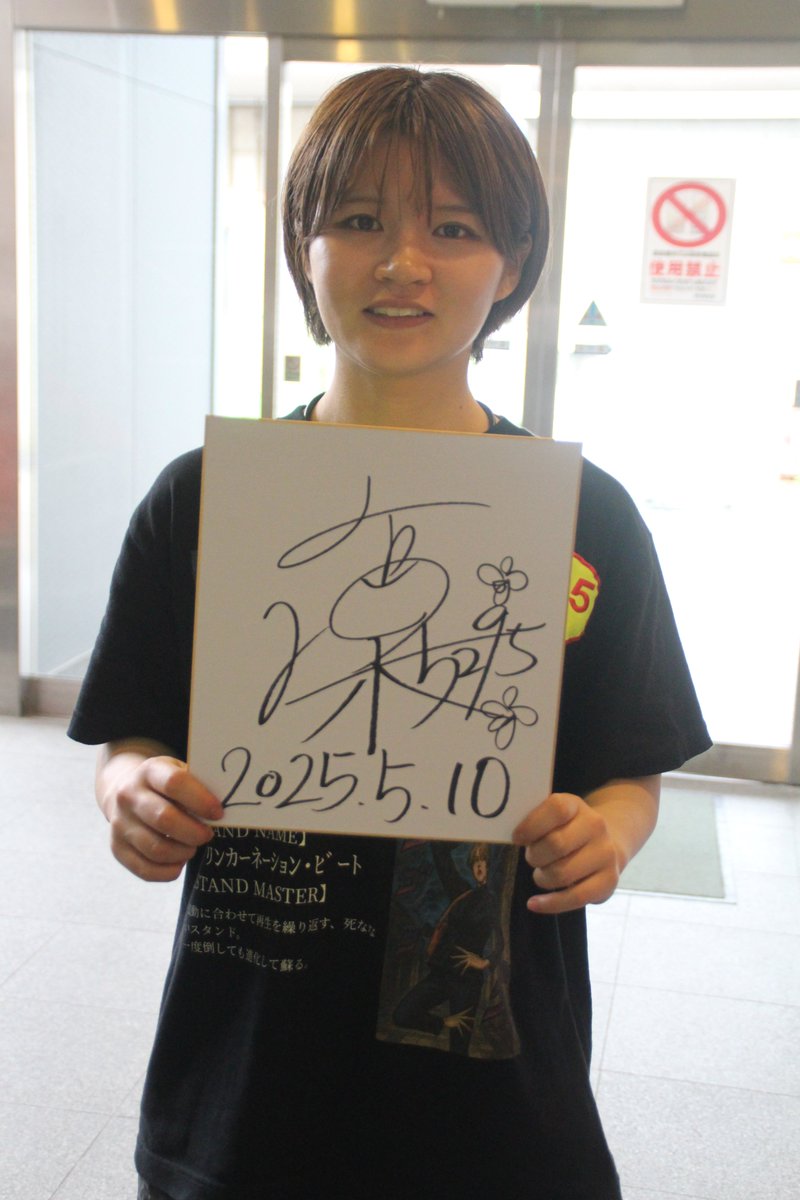 使用禁止
5
5295
2025.5.10
AND NAME】
リンカーネーション・ビート
STAND MASTER】
動に合わせて再生を繰り返す、死なな
いスタンド。
一度倒しても進化して蘇る。